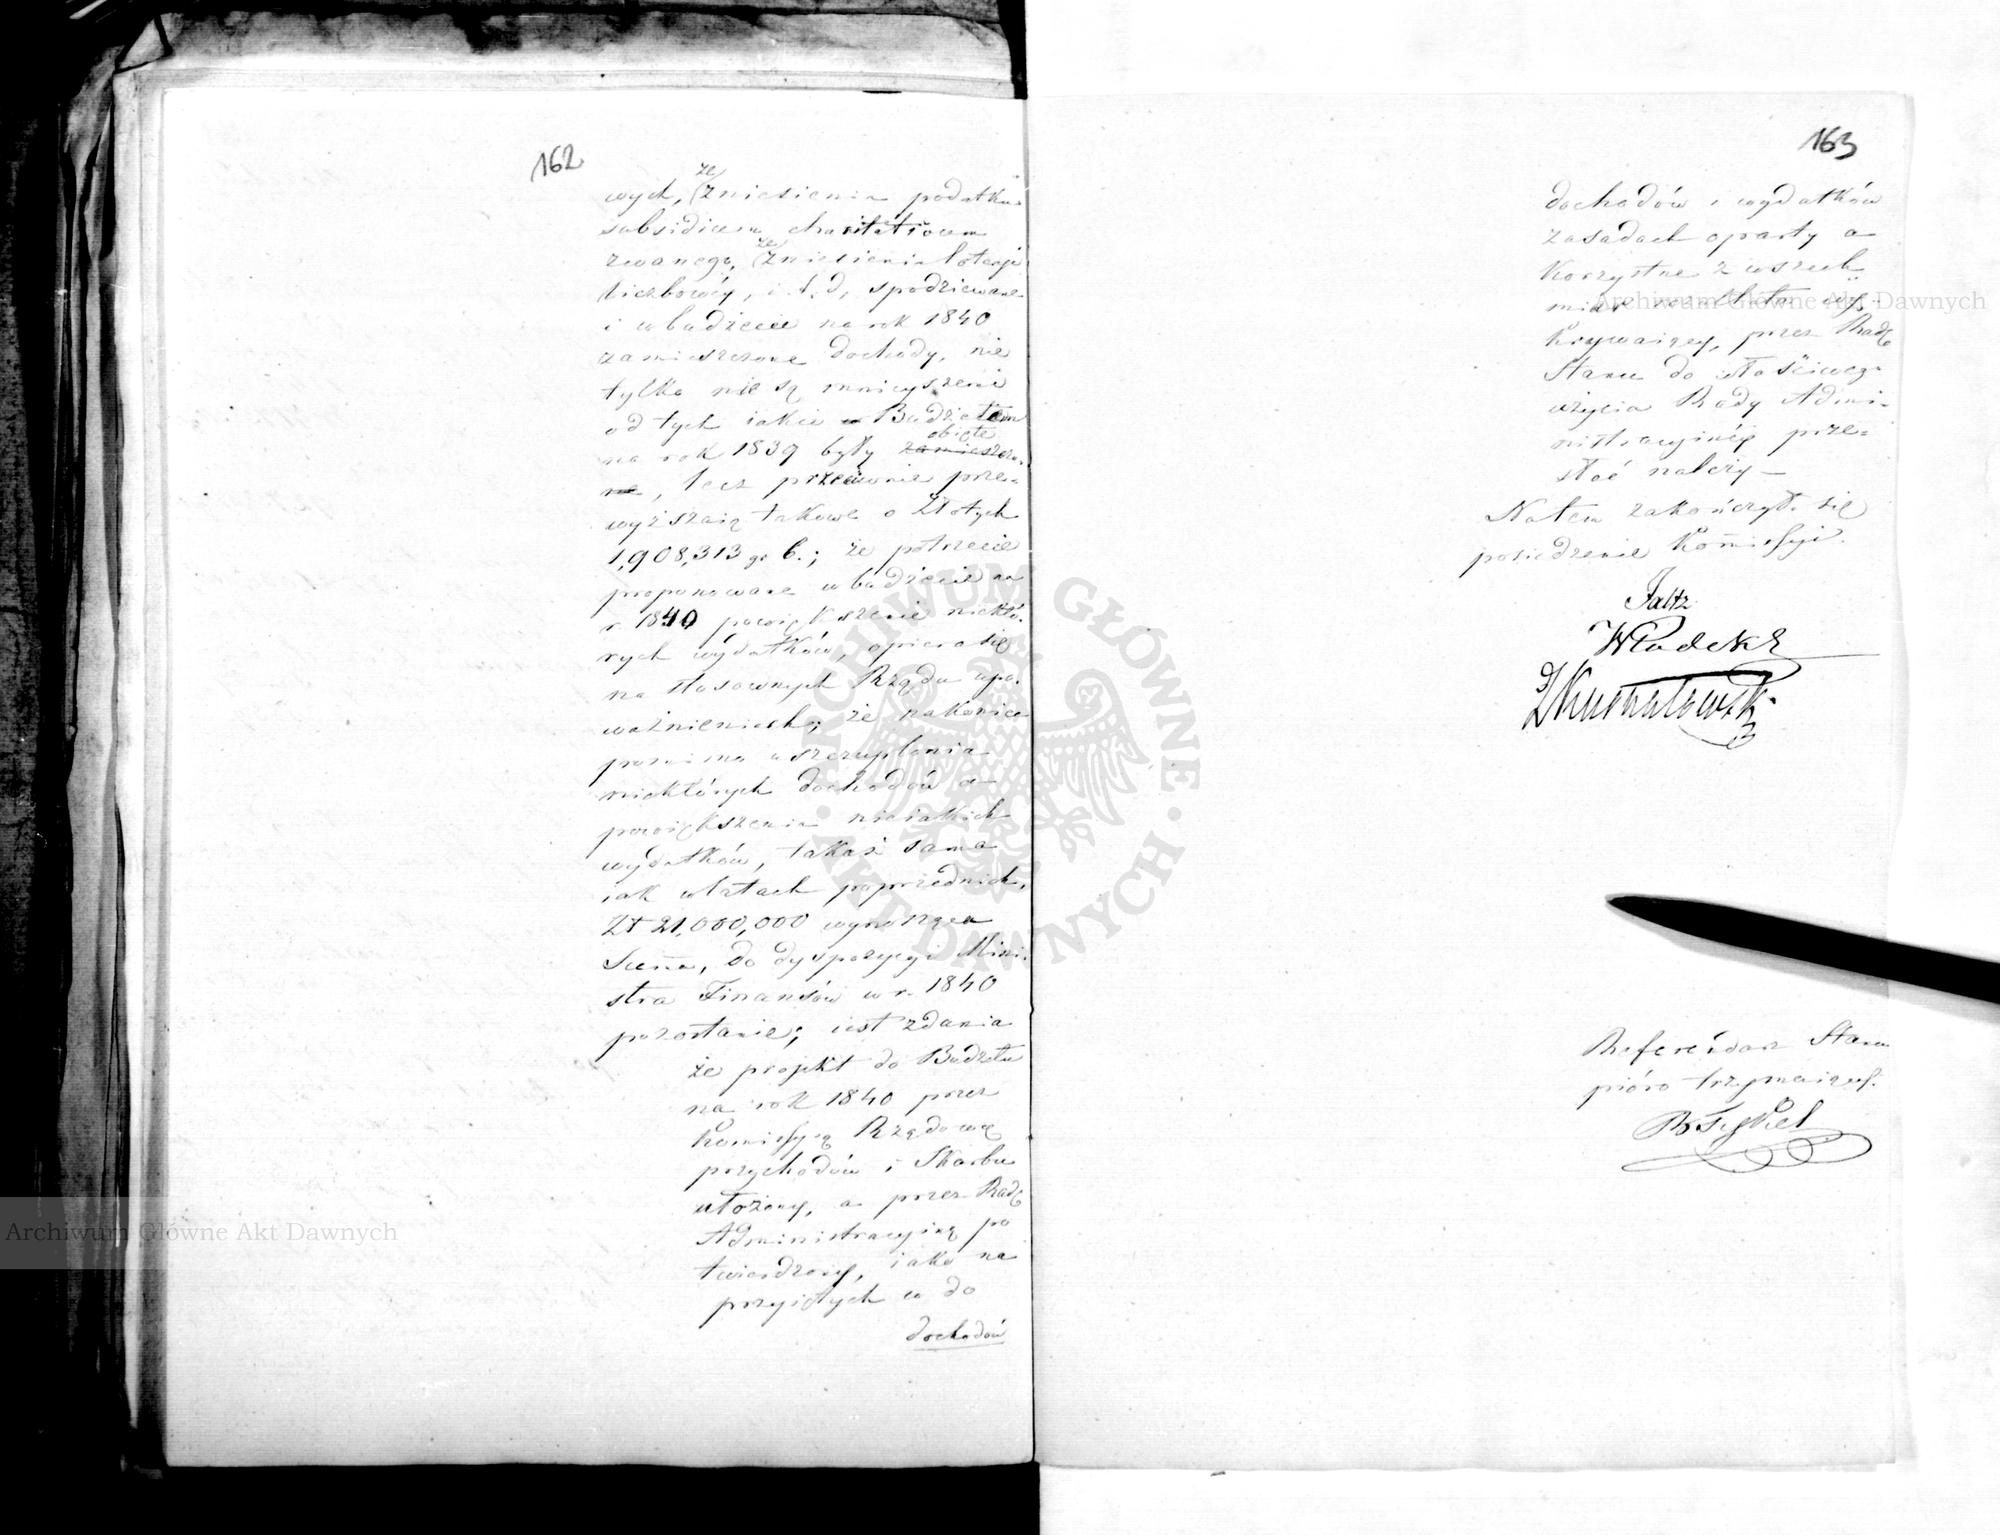 162
ze
wych, zniesienia podatku
subsidium charitativum
ze
zwanego, zniesienia loteryi
liczbowéy, i. t. d, spodziewane
i w budżecie na rok 1840
zamieszczone dochody, nie
tylko nie są mnieyszemi
od tych iakie w Budżetem
obięte
na rok 1839 były zamieszczo-
ne, lecz przeciwnie prze-
wyższaią takowe o Złotych
1,908,313 gr 6.; że potrzecie
proponowane w budżecie na
r. 1840 powiększenie niektó-
rych wydatków, opiera się
na stosownych Rządu upo-
ważnieniach; że nakoniec
pomimo uszczuplenia
niektórych dochodów a
powiększenia nieiakich
wydatków, takaż sama
iak w latach poprzednich,
Zł 21,000,000 wynosząca
Summa, do dyspozycyi Mini-
stra Finansów w r. 1840
pozostanie; iest zdania
że projekt do Budżetu
na rok 1840 przez
Kommissyą Rządową
przychodów i Skarbu
ułożony, a przez Radę
Administracyiną po
twierdzony, iako na
przyiętych w do
dochodów
163
dochodów i wydatków
zasadach oparty a
Korzystne z wszech
miar rezultata wy-
krywaiący, przez Radę
Stanu do właściwego
użycia Rady Admi-
nistracyinéy prze-
słać należy —
Na tem zakończyło się
posiedzenie Kommissyi.
Faltz
Włodek
Kuszałowski
Referendarz Stanu
pióro trzymaiący.
Archiwum Główne Akt Dawnych
Archiwum Główne Akt Dawnych
ARCHIWUM GŁÓWNE · AKT DAWNYCH ·